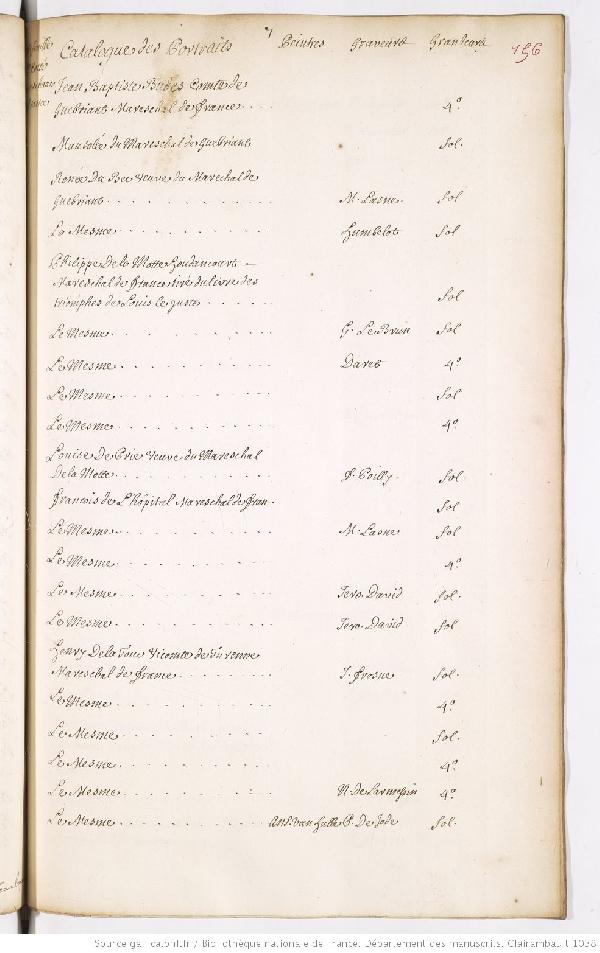 Catalogue des Portraits Peintres Graveurs Grandeurs 156
Jean Baptiste Budes Comte de
Guebriant Mareschal de france 4º
Mausolée du Mareschal de Guebriant fol.
Renée Du Bec Veuve du Marechal de
Guebriant M. Lasne. fol
La Mesme Humbelot fol
Philippe De la Motte Houdancourt
Mareschal de france tiré du livre des
triomphes de Louis le juste fol
Le Mesme G. Le Brun fol
Le Mesme Daret 4º
Le Mesme fol
Le Mesme 4º
Louise De Prie Veuve du Mareschal
De la Motte P. Poilly. fol
francois de L'hôpital Mareschal de fran. fol
Le Mesme M. Lasne fol
Le Mesme 4º
Le Mesme Jero. David fol.
Le Mesme Jero. David fol
Henry De la Tour Vicomte de Turenne
Mareschal de france J. frosne fol.
Le Mesme 4º
Le Mesme fol.
Le Mesme 4º
Le Mesme N. De Larmessin 4º
Le Mesme Ans. van hulle P. De Jode fol.
Source gallica.bnf.fr / Bibliothèque nationale de France. Département des manuscrits. Clairambault 1038